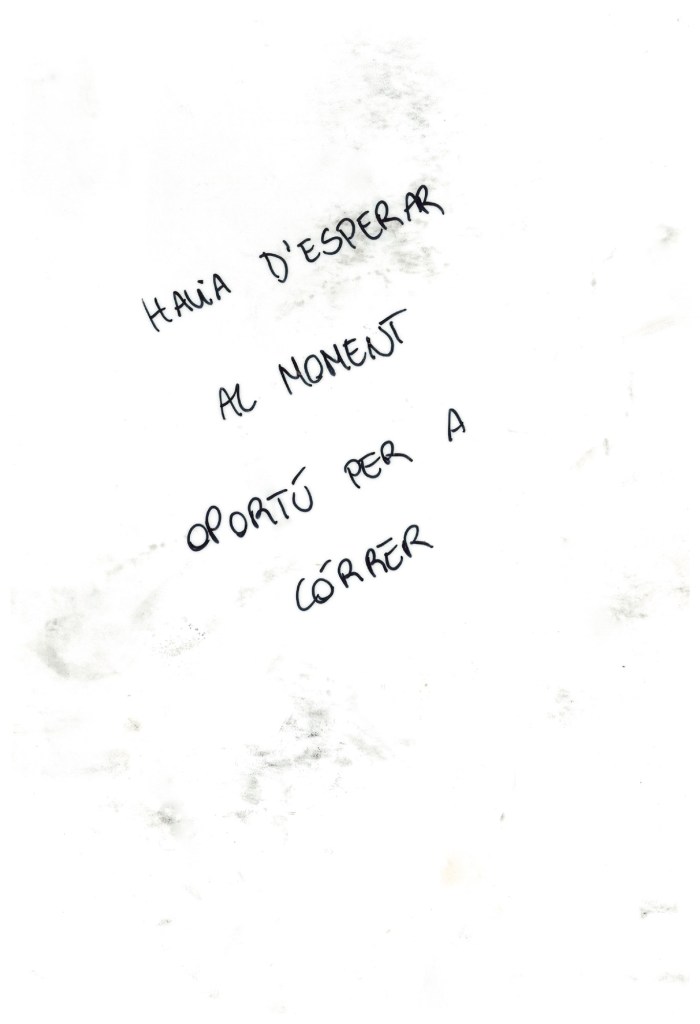 HAViA D'ESPERAR
AL MOMENT
OPORTÚ PER A
CÓRRER